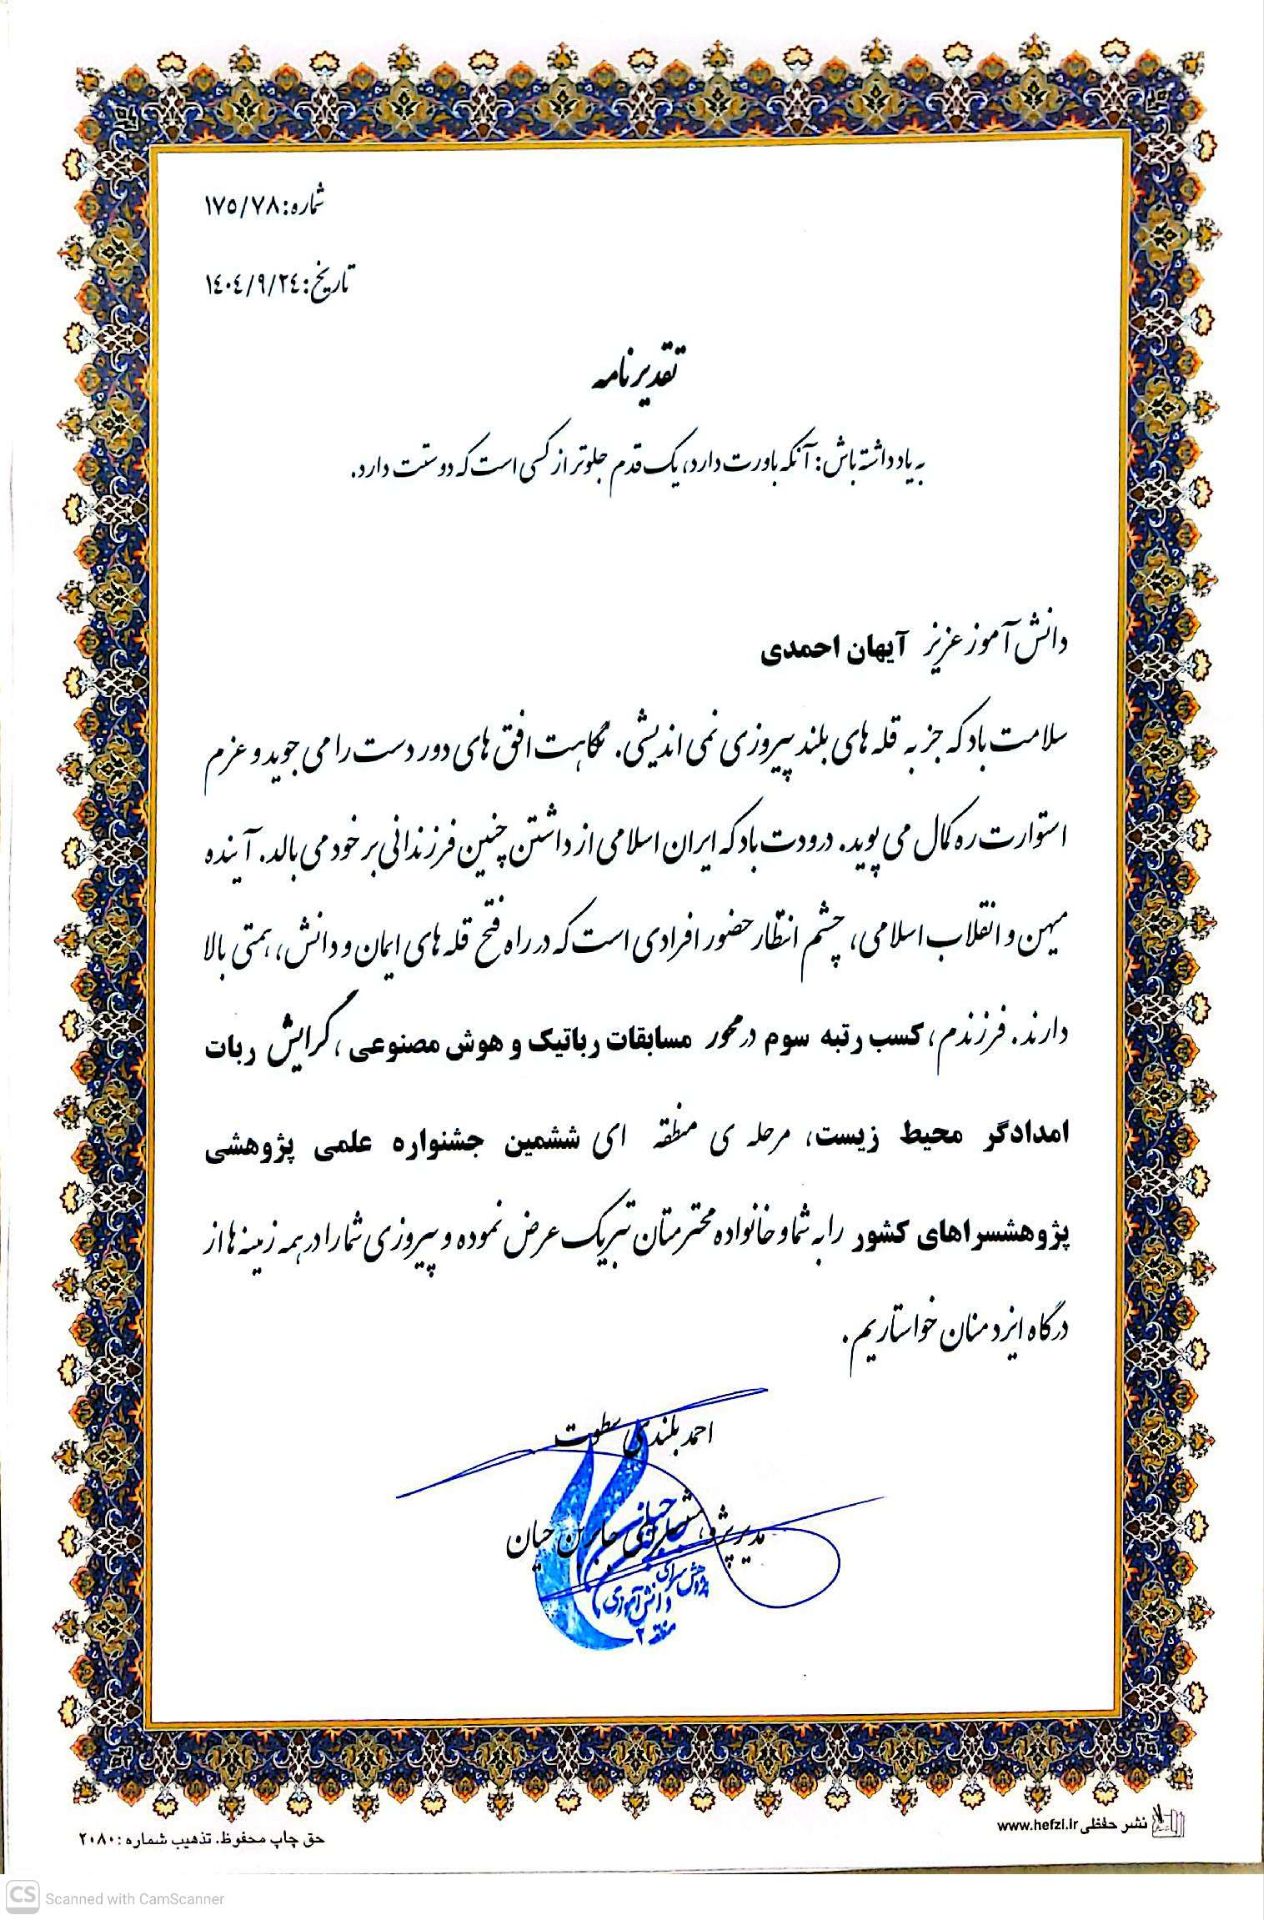 شماره: ۱۷۵/۷۸
تاریخ: ۱۴۰۴/۹/۲۴
تقدیرنامه
به یاد داشته باش: آنکه باورت دارد، یک قدم جلوتر از کسی است که دوستت دارد.
دانش آموز عزیز آیهان احمدی
سلامت باد که جز به قله های بلند پیروزی نمی اندیشی. نگاهت افق های دور دست را می جوید و عزم
استوارت ره کمال می پوید. درودت باد که ایران اسلامی از داشتن چنین فرزندانی بر خود می بالد. آینده
میهن و انقلاب اسلامی، چشم انتظار حضور افرادی است که در راه فتح قله های ایمان و دانش، همتی بالا
دارند. فرزندم، کسب رتبه سوم در محور مسابقات رباتیک و هوش مصنوعی، گرایش ربات
امدادگر محیط زیست، مرحله ی منطقه ای ششمین جشنواره علمی پژوهشی
پژوهشسراهای کشور را به شما و خانواده محترمتان تبریک عرض نموده و پیروزی شما را در همه زمینه ها از
درگاه ایزد منان خواستاریم.
احمد بلندی سطوت
مدیر پژوهشسرای جابربن حیان
پژوهش سرای
دانش آموزی
منطقه ۲
نشر حفظی www.hefzi.ir
حق چاپ محفوظ. تذهیب شماره: ۲۰۸۰
CS Scanned with CamScanner